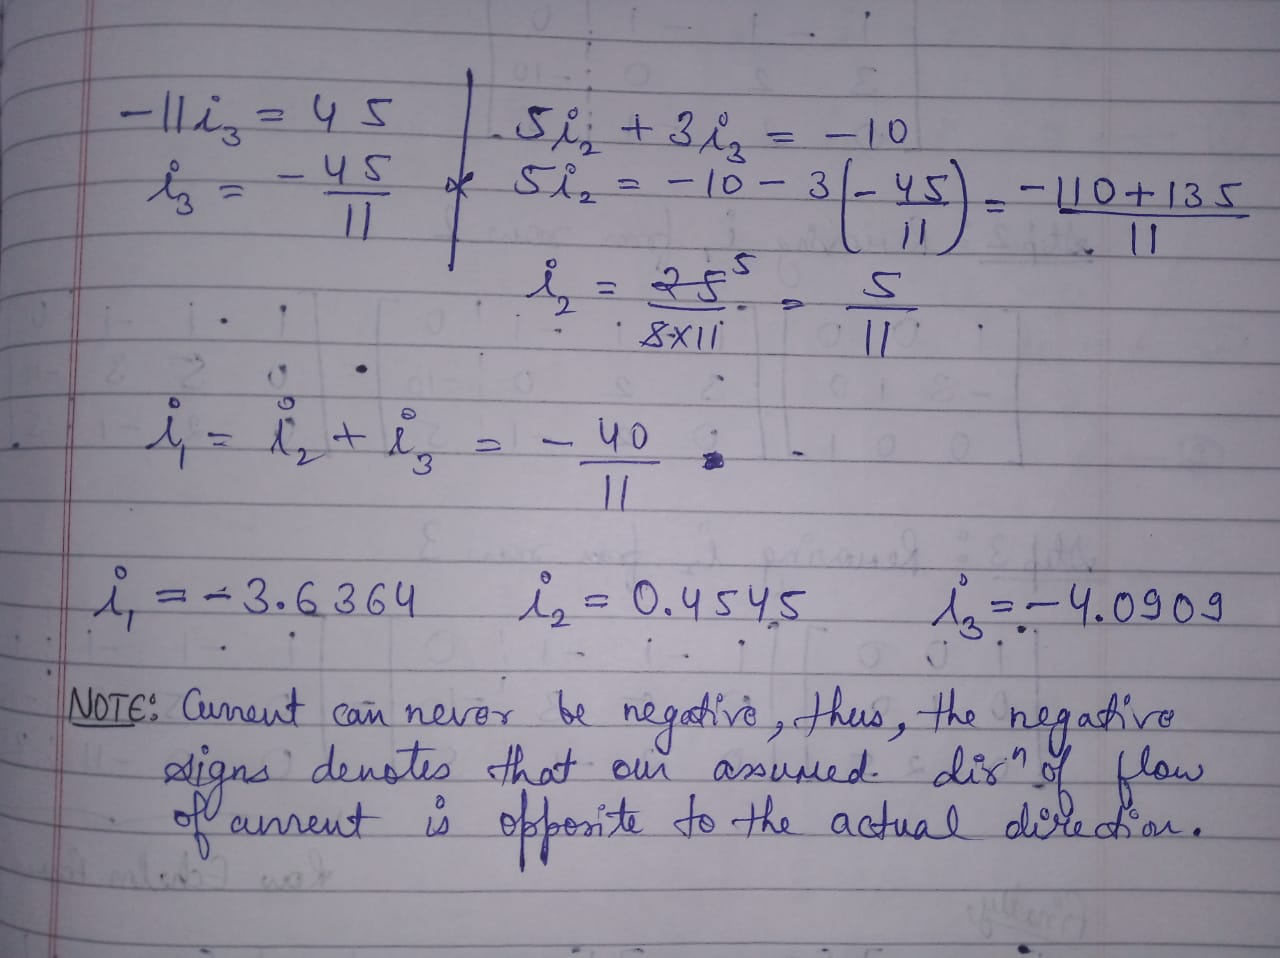 -11i₃ = 45
i₃ = -45/11
5i₂ + 3i₃ = -10
5i₂ = -10 - 3(-45/11) = (-110+135)/11
i₂ = 25⁵/(5×11) = 5/11
i₁ = i₂ + i₃ = -40/11
i₁ = -3.6364 i₂ = 0.4545 i₃ = -4.0909
NOTE: Current can never be negative, thus, the negative
signs denotes that our assumed dirⁿ of flow
of current is opposite to the actual direction.